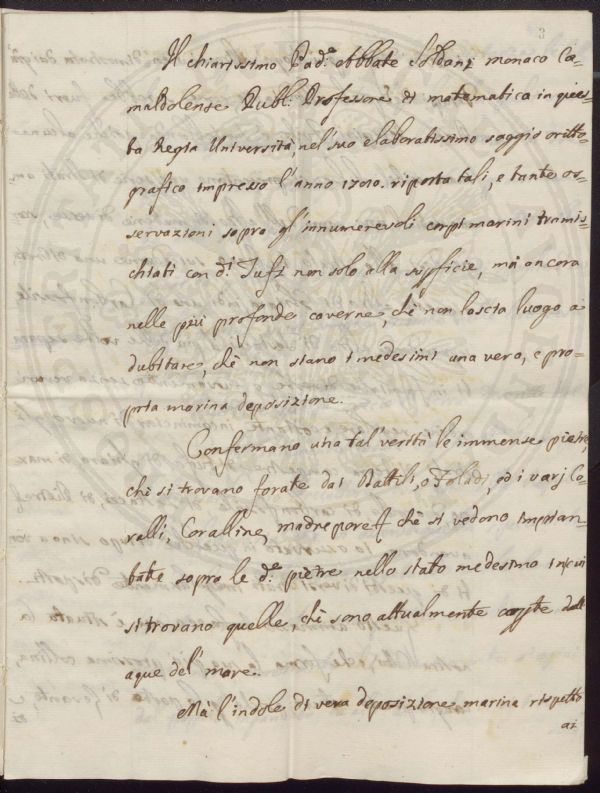 3
Il chiarissimo Pad.e Abbate Soldani monaco Ca-
maldolense Publ: Professore di matematica in ques-
ta Regia Università, nel suo elaboratissimo saggio oritto-
grafico impresso l'anno riporta tali, e tante os-
servazioni sopra gl'innumerevoli corpi marini tramis-
chiati con d.i Tufi non solo alla supficie, mà ancora
nelle più profonde caverne, chè non lascia luogo a
dubitare, chè non siano i medesimi una vera, e pro-
pria marina deposizione.
Confermano una tal' verità le immense pietre,
chè si trovano forate dai Dattili, o Foladi, ed i varj Co-
ralli, Coralline, madrepore chè si vedono impian-
tate sopra le d.e piètre nello stato medesimo in cui
si trovano quelle, chè sono attualmente copte dall
aque del' mare.
Mà l'indole di vera deposizione marina rispetto
ai